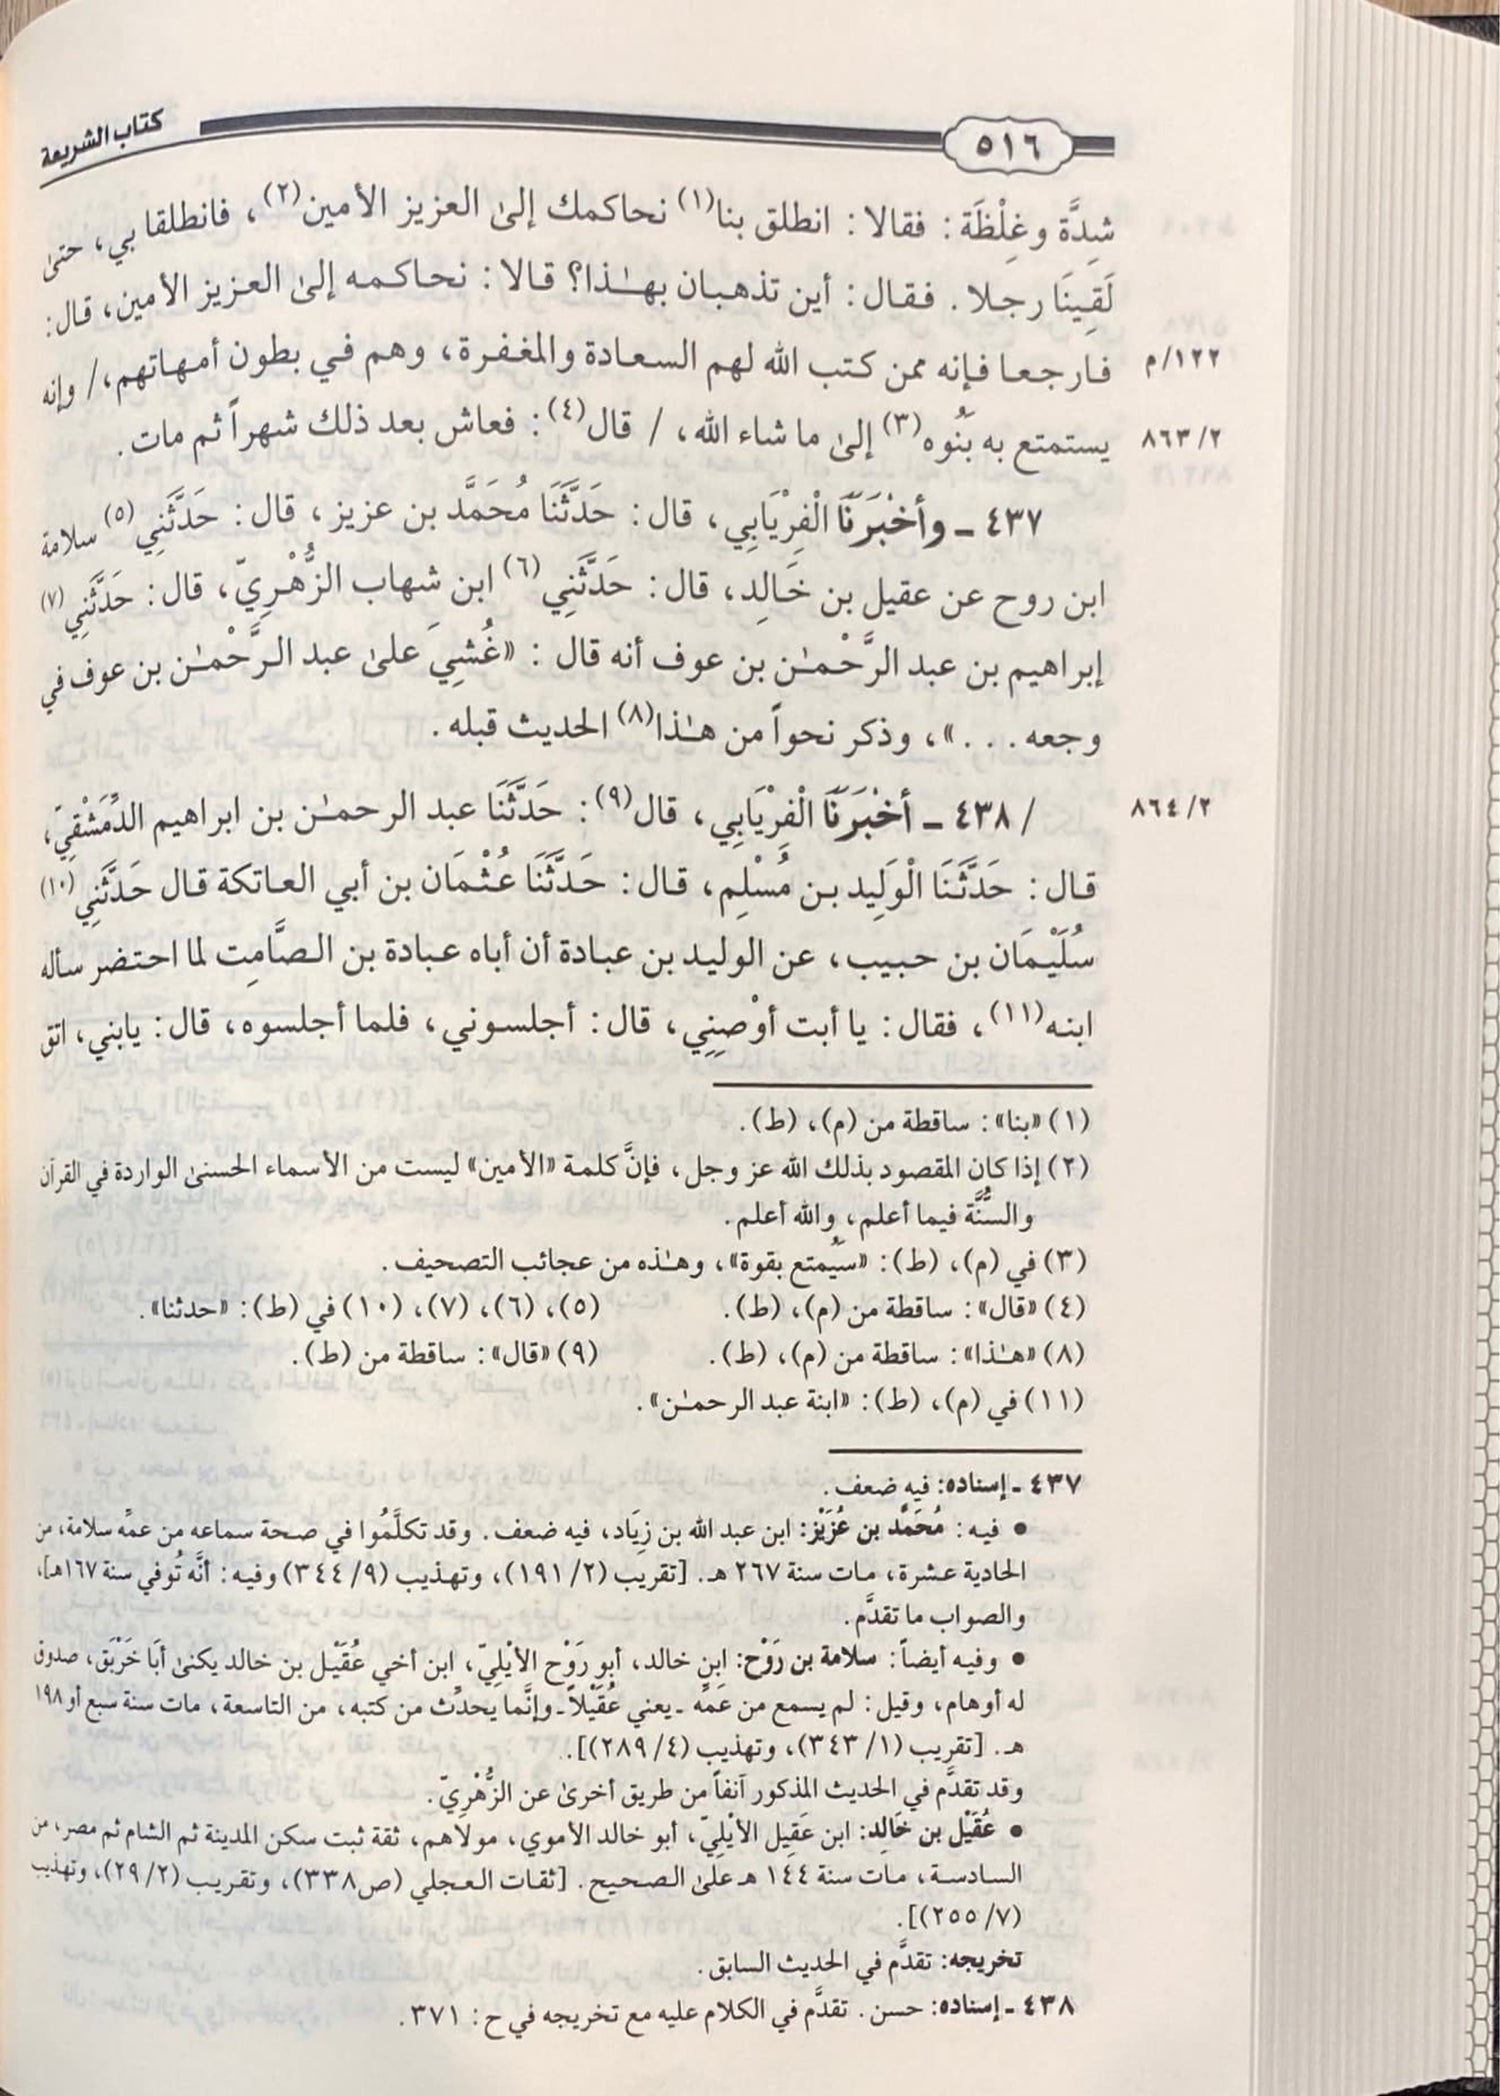 كتاب الشريعة
٥١٦
شِدَّة وغِلْظَة: فقالا: انطلق بنا(١) نحاكمك إلىٰ العزيز الأمين(٢)، فانطلقا بي، حتىٰ
لَقِينَا رجلا. فقال: أين تذهبان بهـٰذا؟ قالا: نحاكمه إلىٰ العزيز الأمين، قال:
١٢٢/م
فارجعا فإنه ممن كتب الله لهم السعادة والمغفرة، وهم في بطون أمهاتهم،/ وإنه
٨٦٣/٢
يستمتع به بَنُوه(٣) إلىٰ ما شاء الله، / قال(٤): فعاش بعد ذلك شهراً ثم مات.
٤٣٧ ـ وأَخْبَرَنَا الْفِرْيَابِي، قال: حَدَّثَنَا مُحَمَّد بن عزيز، قال: حَدَّثَنِي(٥) سلامة
ابن روح عن عقيل بن خَالِد، قال: حَدَّثَنِي(٦) ابن شِهاب الزُّهْرِيّ، قال: حَدَّثَنِي(٧)
إبراهيم بن عبد الرَّحْمـٰن بن عوف أنه قال: «غُشِيَ علىٰ عبد الرَّحْمـٰن بن عوف في
وجعه...»، وذكر نحواً من هـٰذا(٨) الحديث قبله.
٨٦٤/٢
/ ٤٣٨ ـ أَخْبَرَنَا الْفِرْيَابِي، قال(٩): حَدَّثَنَا عبد الرحمـٰن بن ابراهيم الدِّمَشْقِيّ،
قال: حَدَّثَنَا الْوَلِيد بن مُسْلِم، قال: حَدَّثَنَا عُثْمَان بن أبي العاتكة قال حَدَّثَنِي(١٠)
سُلَيْمَان بن حبيب، عن الوليد بن عبادة أن أباه عبادة بن الصَّامِت لما احتضر سأله
ابنه(١١)، فقال: يا أبت أوْصِنِي، قال: أجلسوني، فلما أجلسوه، قال: يابني، اتق
(١) «بنا»: ساقطة من (م)، (ط).
(٢) إذا كان المقصود بذلك الله عز وجل، فإنَّ كلمة «الأمين» ليست من الأسماء الحسنىٰ الواردة في القرآن
والسُّنَّة فيما أعلم، والله أعلم.
(٣) في (م)، (ط): «سَيُمتع بقوة»، وهـٰذه من عجائب التصحيف.
(٤) «قال»: ساقطة من (م)، (ط). (٥)، (٦)، (٧)، (١٠) في (ط): «حدثنا».
(٨) «هـٰذا»: ساقطة من (م)، (ط). (٩) «قال»: ساقطة من (ط).
(١١) في (م)، (ط): «ابنة عبد الرحمـٰن».
٤٣٧ ـ إسناده: فيه ضعف.
● فيه: مُحَمَّد بن عُزَيْز: ابن عبد الله بن زِيَاد، فيه ضعف. وقد تكلَّمُوا في صحة سماعه من عمِّه سلامة، من
الحادية عشرة، مات سنة ٢٦٧ هـ. [تقريب (١٩١/٢)، وتهذيب (٣٤٤/٩) وفيه: أنَّه تُوفي سنة ١٦٧هـ]،
والصواب ما تقدَّم.
● وفيه أيضاً: سلامة بن رَوْح: ابن خالد، أبو رَوْح الأيْلِيّ، ابن أخي عُقَيْل بن خالد يكنىٰ أبَا خَرْبَق، صدوق
له أوهام، وقيل: لم يسمع من عَمِّه ـ يعني عُقَيْلاً ـ وإنَّما يحدِّث من كتبه، من التاسعة، مات سنة سبع أو ١٩٨
هـ. [تقريب (٣٤٣/١)، وتهذيب (٢٨٩/٤)].
وقد تقدَّم في الحديث المذكور آنفاً من طريق أخرىٰ عن الزُّهْرِيّ.
● عُقَيْل بن خَالِد: ابن عَقِيل الأيْلِيّ، أبو خالد الأموي، مولاهم، ثقة ثبت سكن المدينة ثم الشام ثم مصر، من
السادسة، مات سنة ١٤٤ هـ علىٰ الصحيح. [ثقات العجلي (ص٣٣٨)، وتقريب (٢٩/٢)، وتهذيب
(٢٥٥/٧)].
تخريجه: تقدَّم في الحديث السابق.
٤٣٨ ـ إسناده: حسن. تقدَّم في الكلام عليه مع تخريجه في ح: ٣٧١.